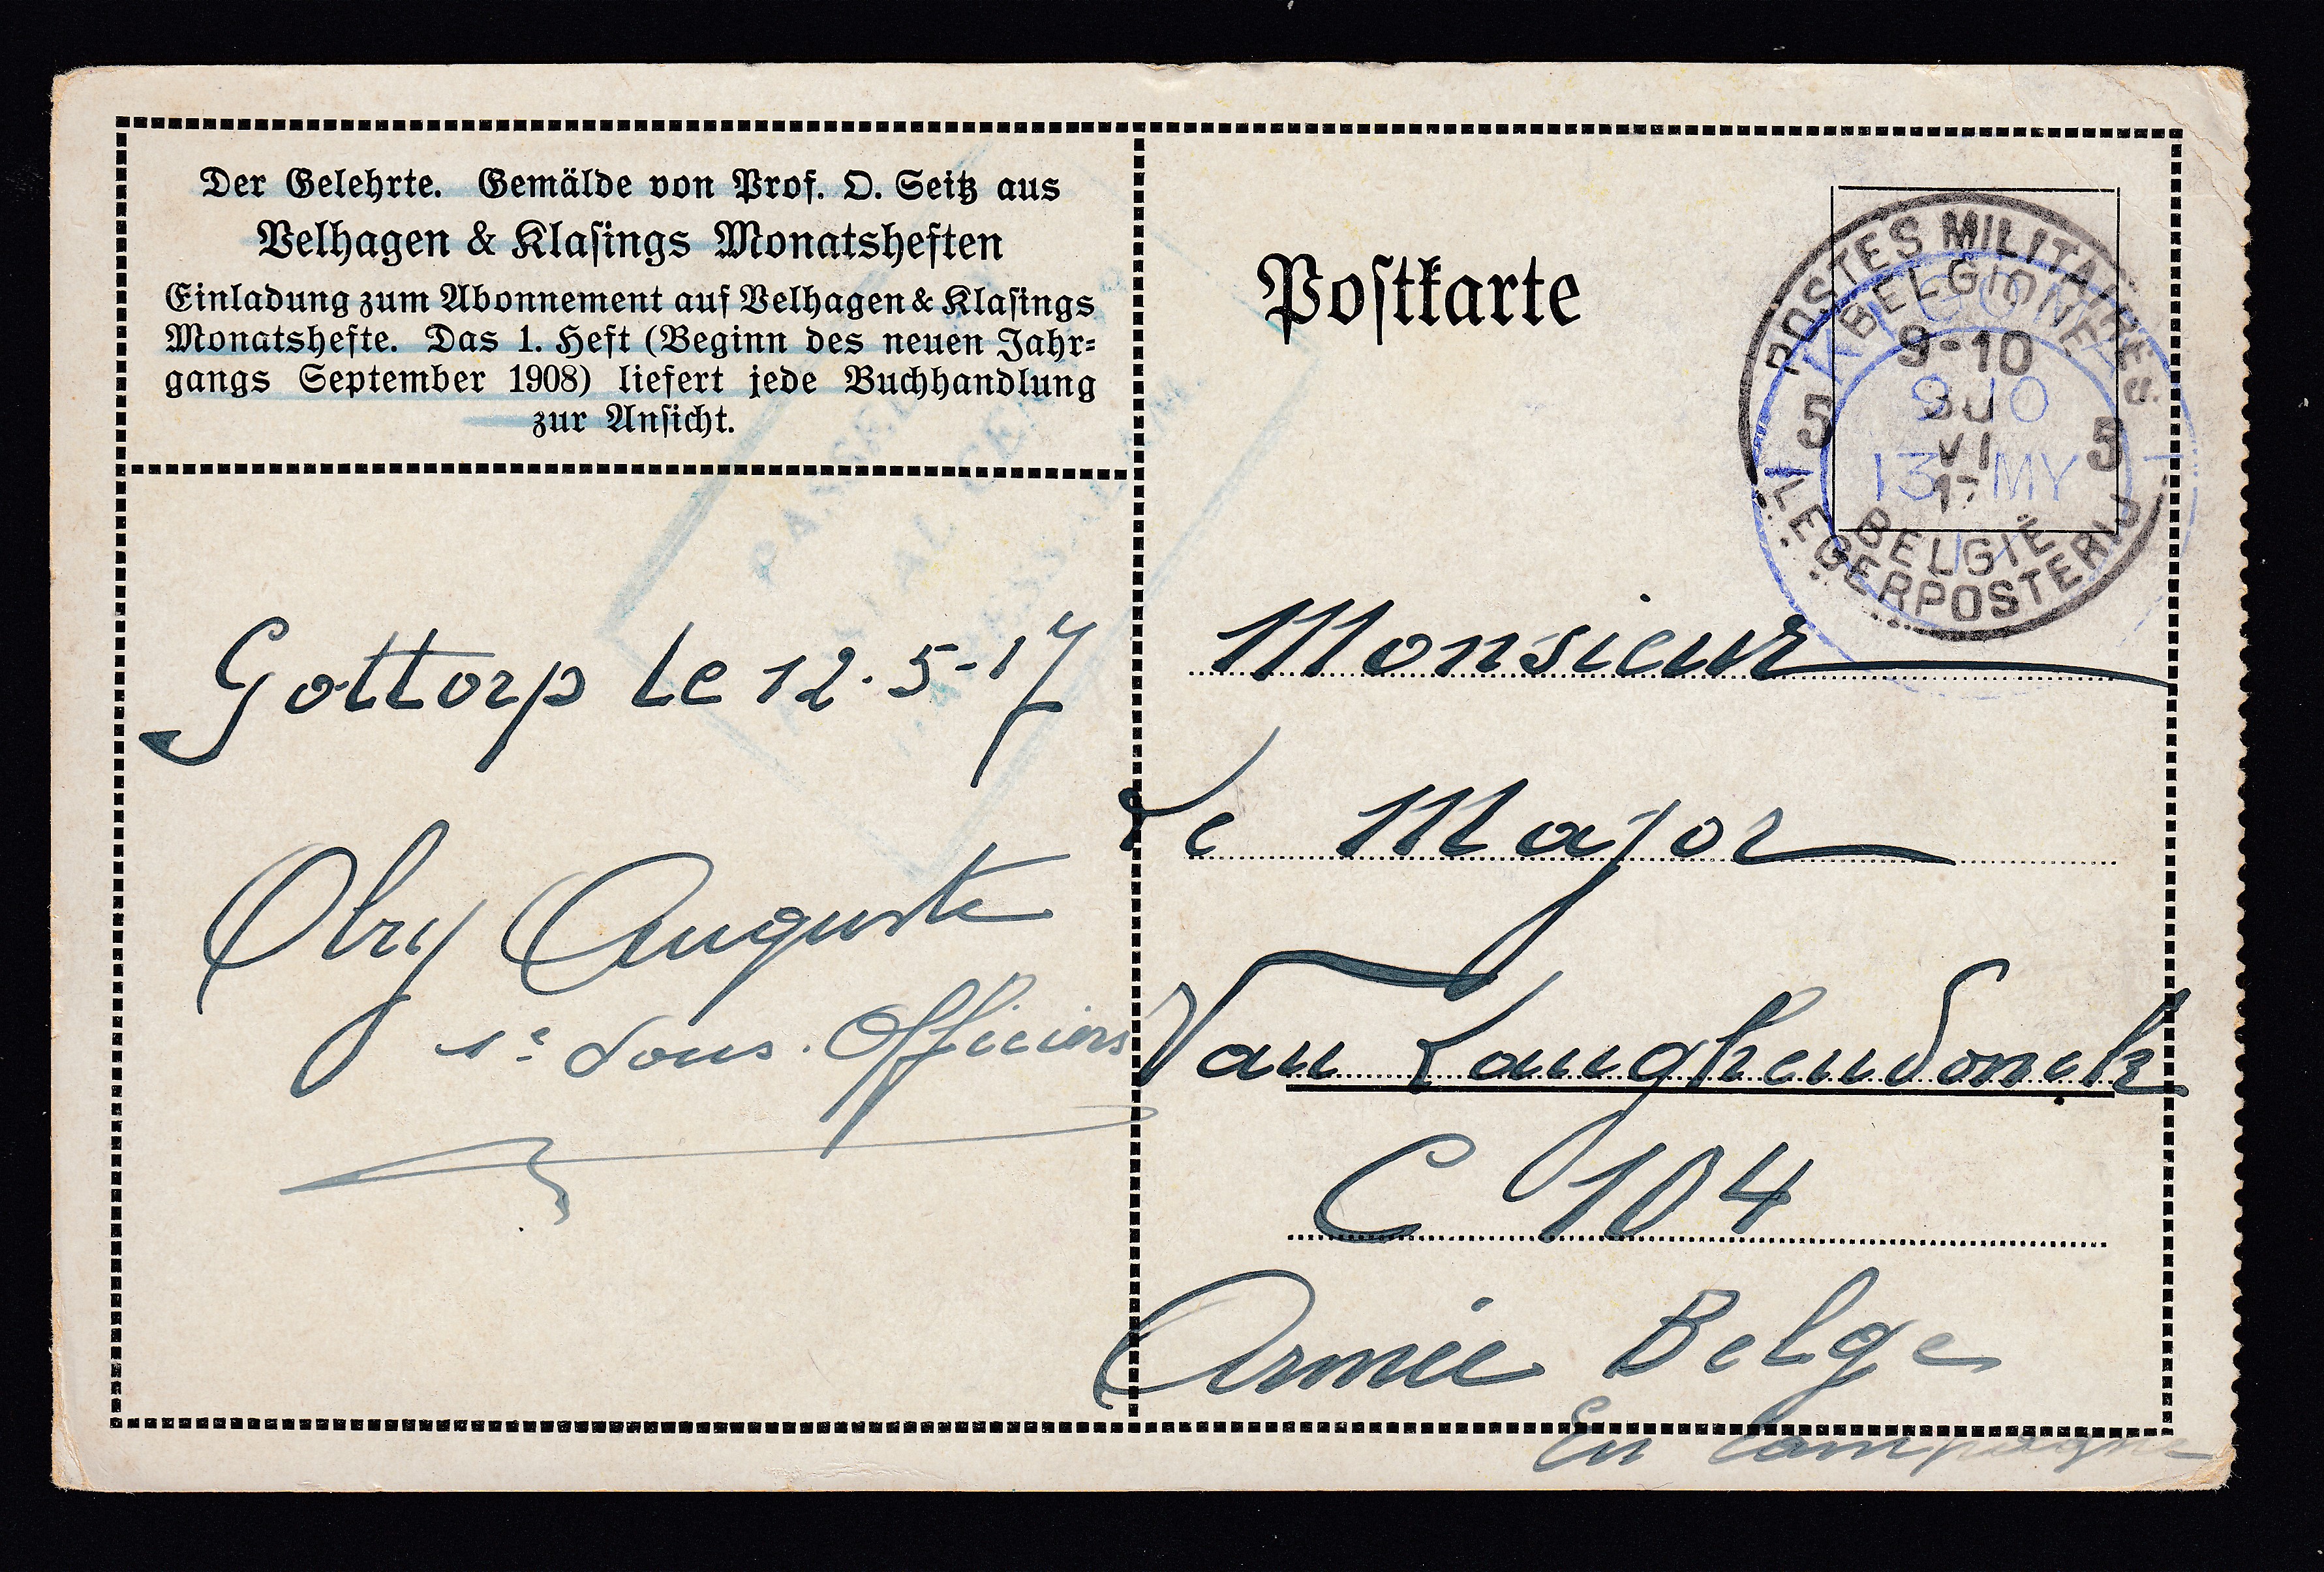 Der Gelehrte. Gemälde von Prof. O. Seitz aus
Velhagen & Klasings Monatsheften
Einladung zum Abonnement auf Velhagen & Klasings
Monatshefte. Das 1. Heft (Beginn des neuen Jahr-
gangs September 1908) liefert jede Buchhandlung
zur Ansicht.
Postkarte
POSTES MILITAIRES
BELGIQUE
9-10
30
VI
17
5 5
BELGIË
LEGERPOSTERIJ
9 10
13 MY
17
PASSED
Gottorp le 12.5-17
Olry Auguste
1e Sous. Officiers
Monsieur
Le Major
Van Langhendonck
C 104
Armée Belge
En Campagne